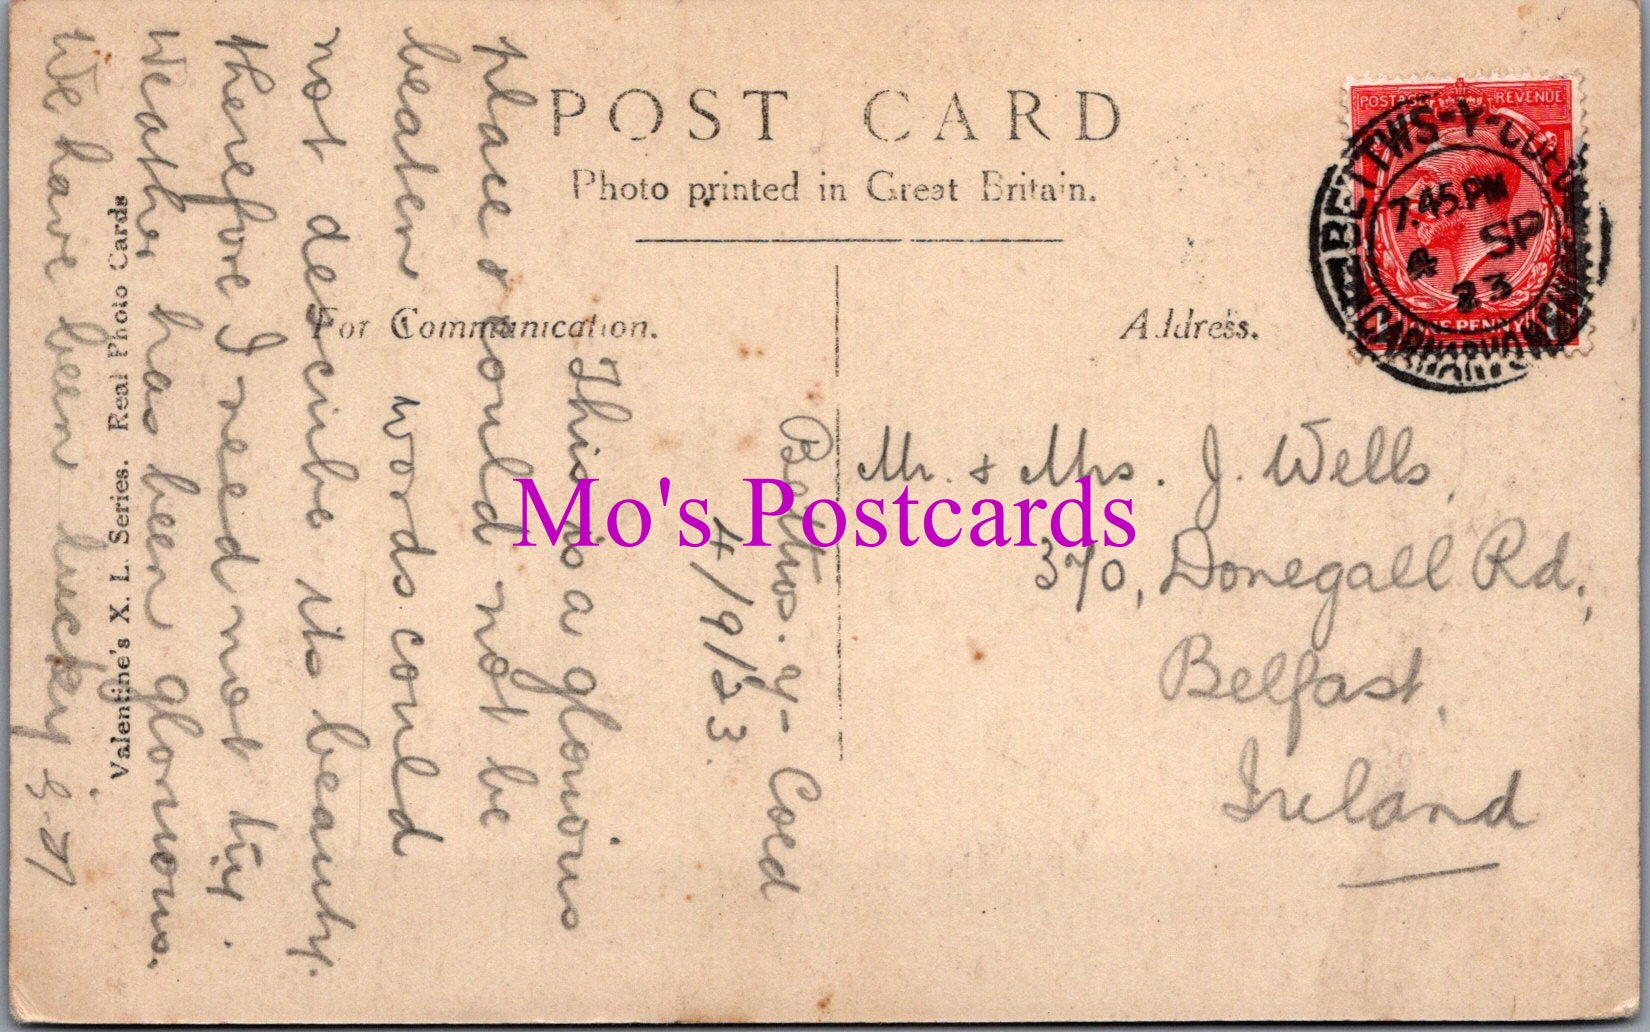 POST CARD
Photo printed in Great Britain.
For Communication.
Address.
POSTAGE REVENUE
ONE PENNY
BETTWS-Y-COED
7.45.PM
4 SP
23
CARNARVONSHIRE
Bettws-y-Coed
4/9/23.
This is a glorious
place & could not be
beaten words could
not describe its beauty.
therefore I need not try.
Weather has been glorious.
We have been lucky
Mr. & Mrs. J. Wells,
370, Donegall Rd.,
Belfast,
Ireland
Valentine's X. L. Series. Real Photo Cards
Mo's Postcards